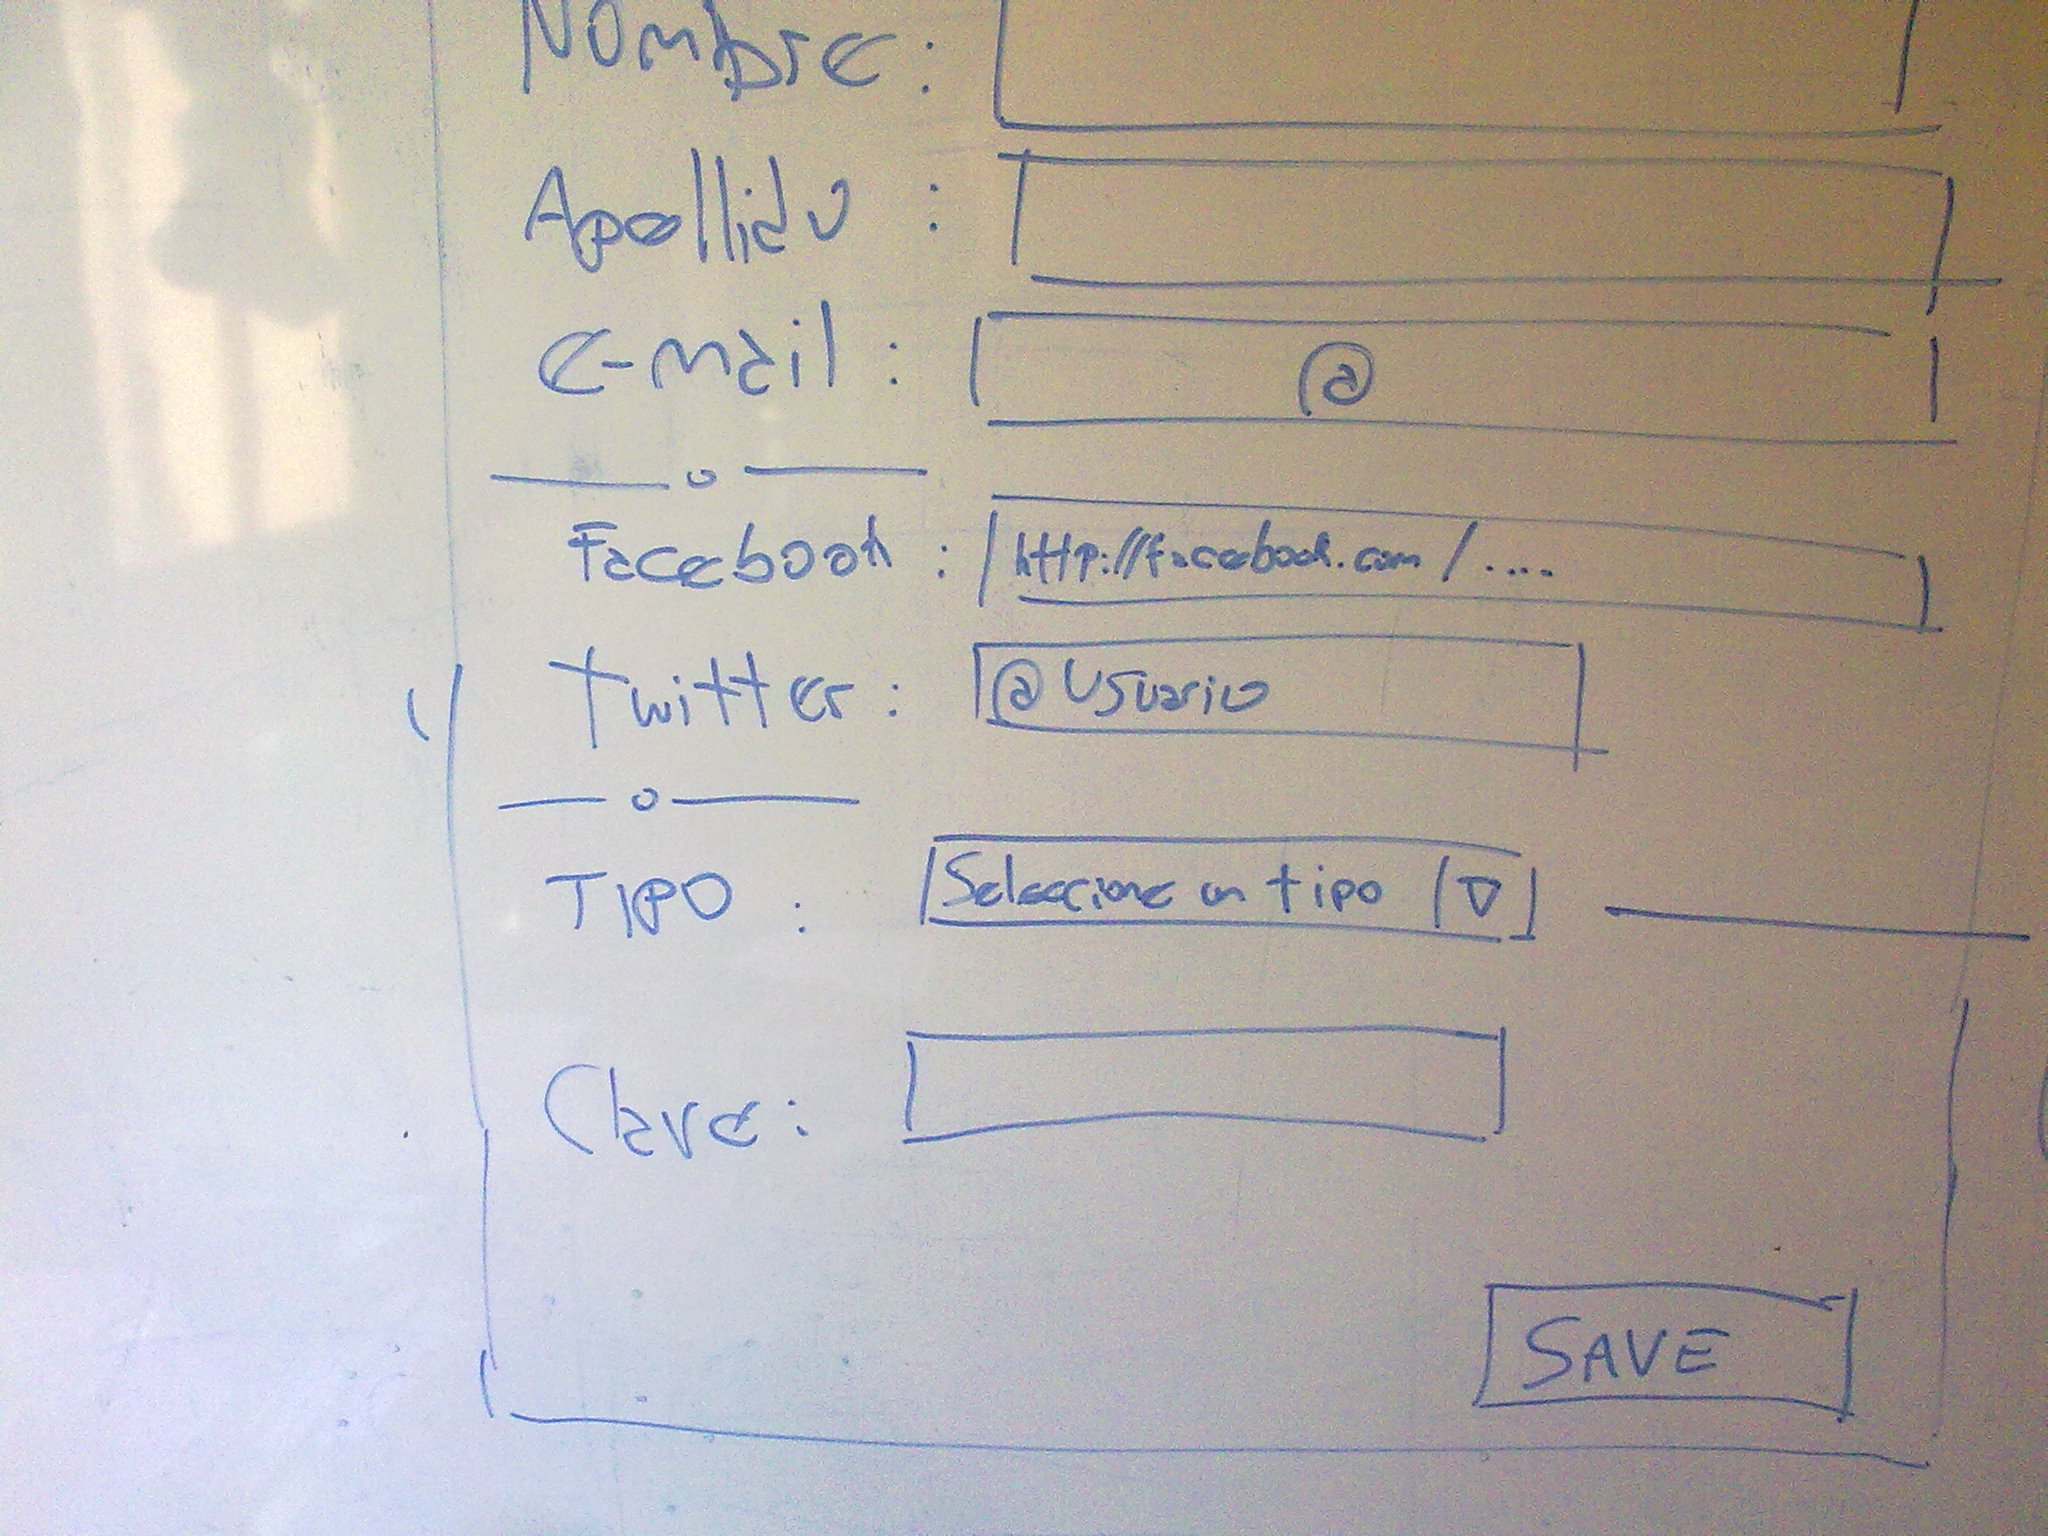 Nombre:
Apellido :
e-mail : @
Facebook : http://facebook.com/....
Twitter: @Usuario
TIPO : Seleccione un tipo
Clave:
SAVE